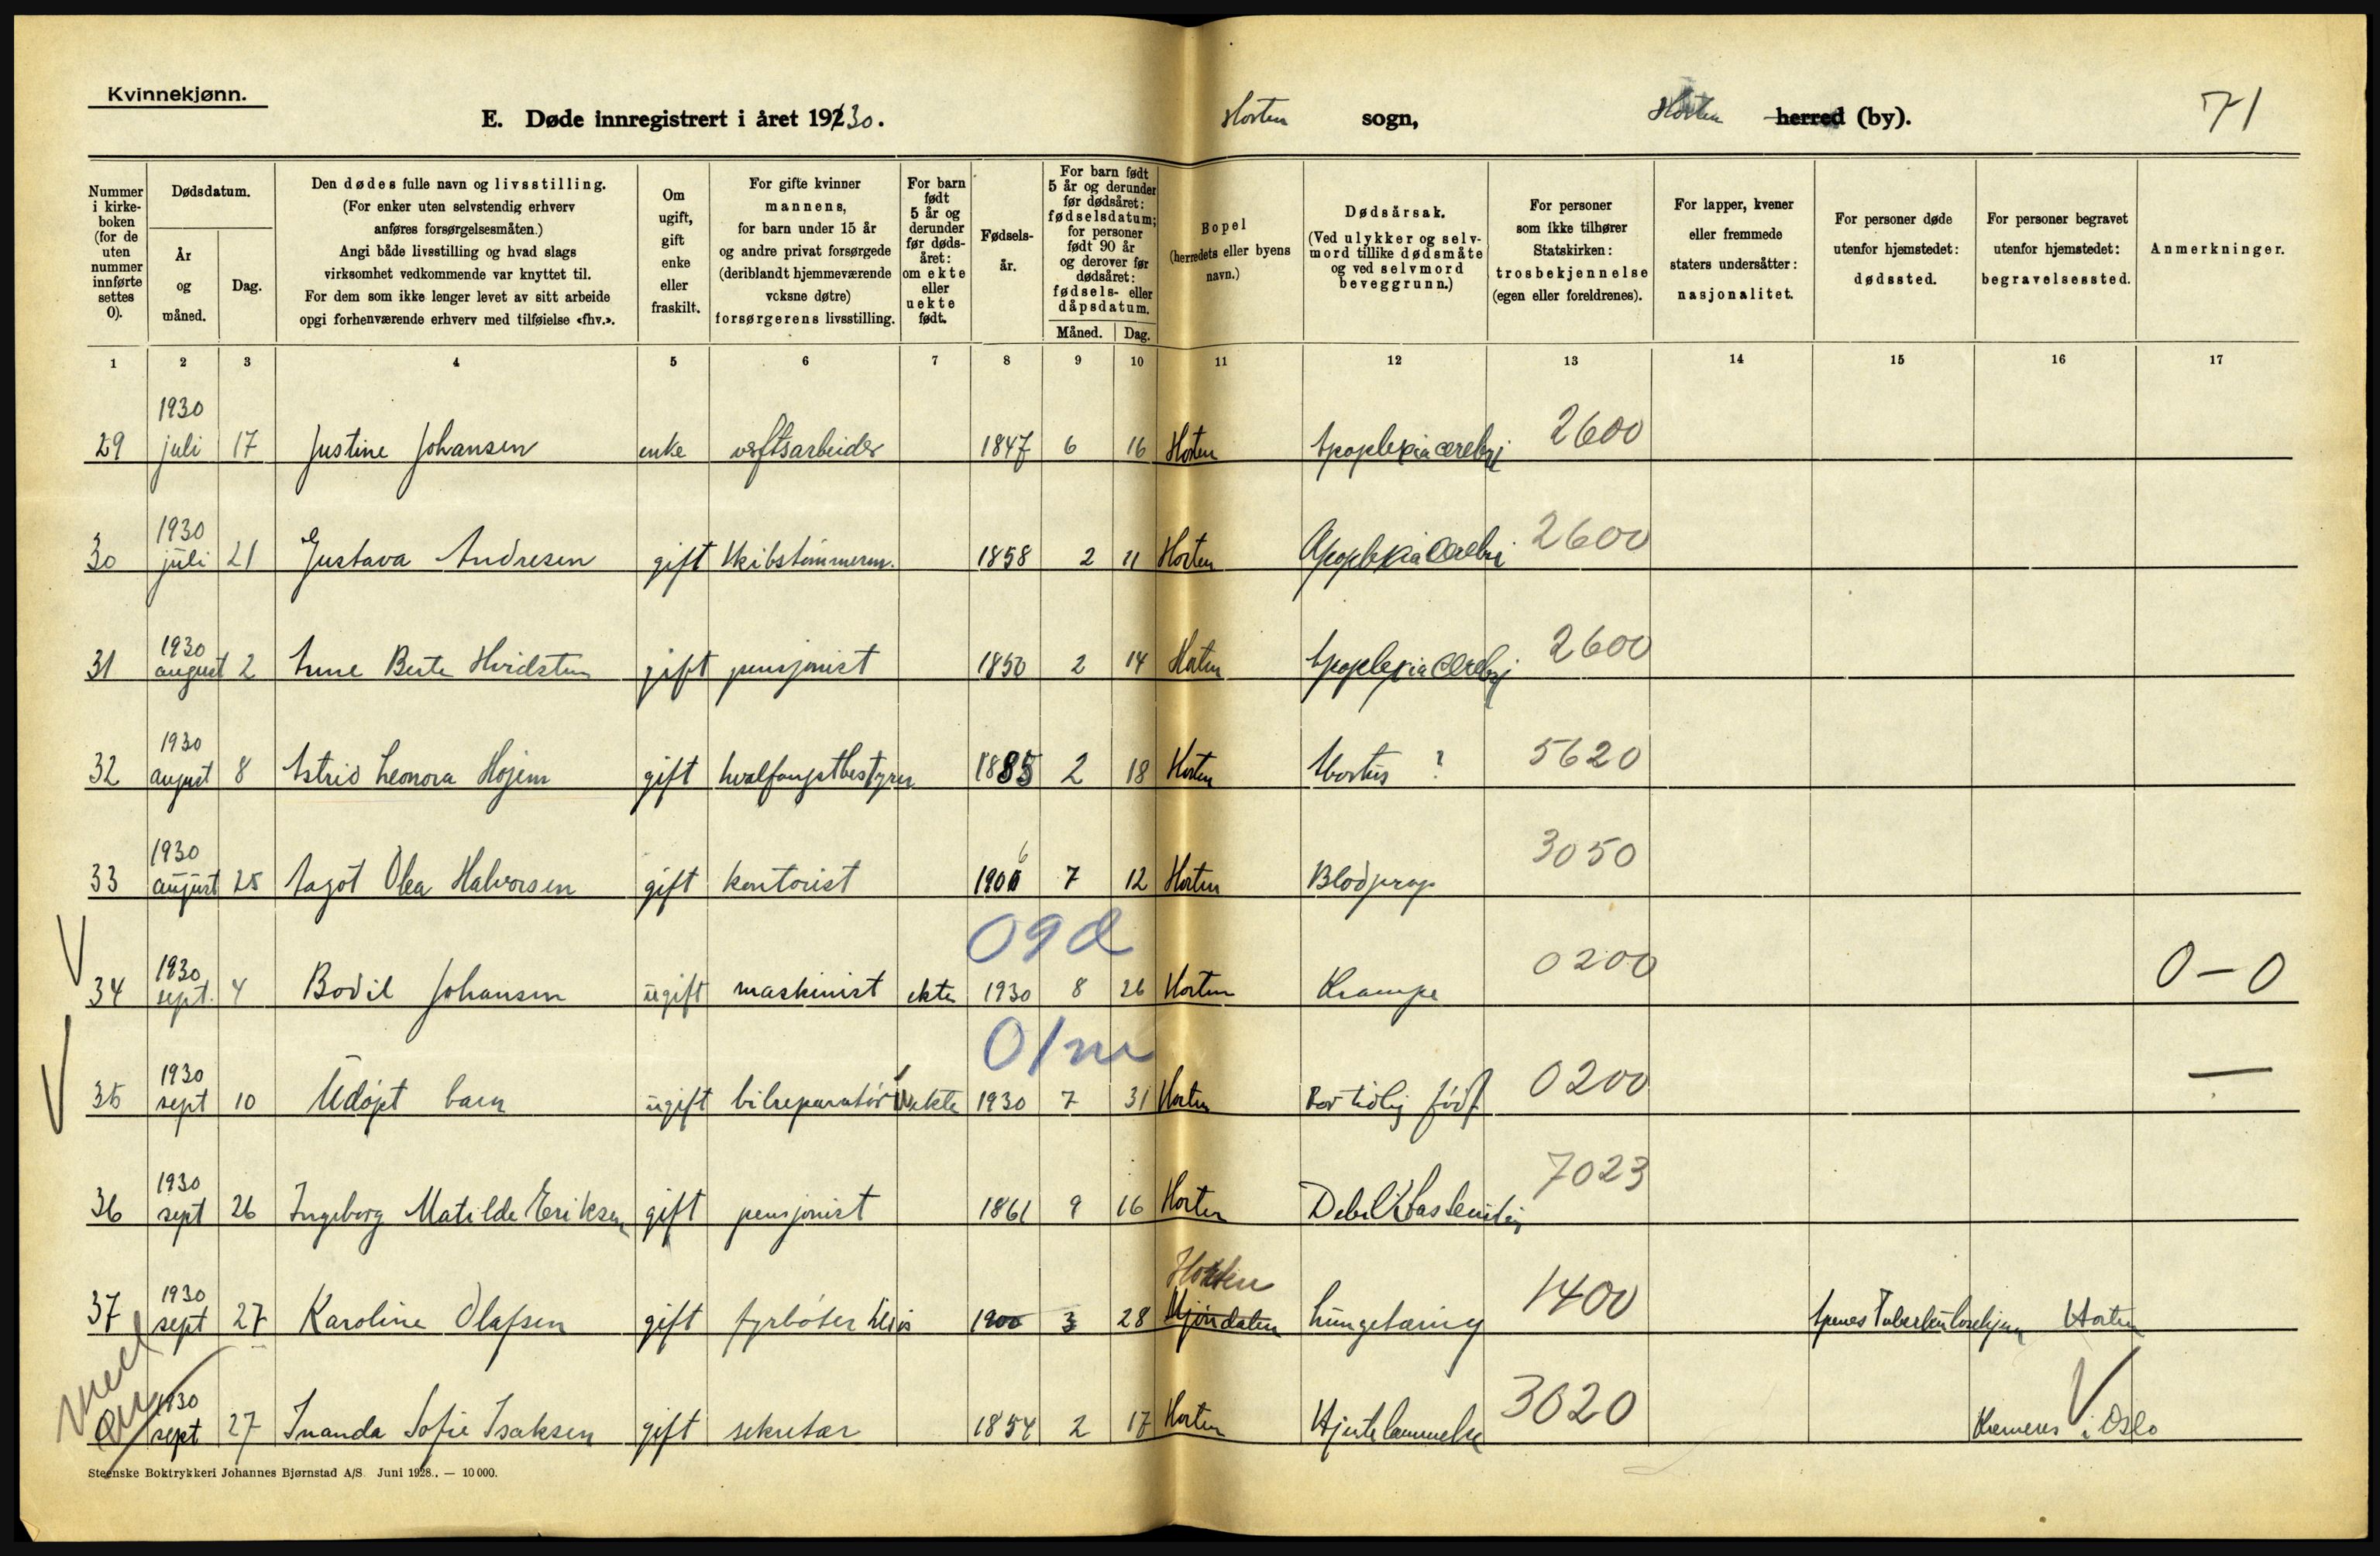 Kvinnekjønn.
E. Døde innregistrert i året 1930.
Horten sogn,
Horten herred (by).
71
Nummer i kirke- boken (for de uten nummer innførte settes 0).
Dødsdatum.
År og måned.
Dag.
Den dødes fulle navn og livsstilling.
(For enker uten selvstendig erhverv
anføres forsørgelsesmåten.)
Angi både livsstilling og hvad slags
virksomhet vedkommende var knyttet til.
For dem som ikke lenger levet av sitt arbeide
opgi forhenværende erhverv med tilføielse «fhv.».
Om ugift, gift enke eller fraskilt.
For gifte kvinner
mannens,
for barn under 15 år
og andre privat forsørgede
(deriblandt hjemmeværende
voksne døtre)
forsørgerens livsstilling.
For barn født 5 år og derunder før døds- året: om ekte eller uekte født.
Fødsels- år.
For barn født 5 år og derunder før dødsåret: fødselsdatum; for personer født 90 år og derover før dødsåret: fødsels- eller dåpsdatum.
Måned.
Dag.
Bopel
(herredets eller byens
navn.)
Dødsårsak.
(Ved ulykker og selv-
mord tillike dødsmåte
og ved selvmord
beveggrunn.)
For personer
som ikke tilhører
Statskirken:
trosbekjennelse
(egen eller foreldrenes).
For lapper, kvener
eller fremmede
staters undersåtter:
nasjonalitet.
For personer døde
utenfor hjemstedet:
dødssted.
For personer begravet
utenfor hjemstedet:
begravelsessted.
Anmerkninger.
1 2 3 4 5 6 7 8 9 10 11 12 13 14 15 16 17
29 1930 juli 17 Justine Johansen enke verftsarbeider 1847 6 16 Horten Apoplexia cerebri 2600
30 1930 juli 21 Gustava Andresen gift Skibstømmerm. 1858 2 11 Horten Apoplexia cerebri 2600
31 1930 august 2 Anne Berte Hvidsten gift pensjonist 1850 2 14 Horten Apoplexia cerebri 2600
32 1930 august 8 Astrid Leonora Hojem gift hvalfangstbestyrer 1885 2 18 Horten Abortus ? 5620
33 1930 august 25 Aagot Olea Halvorsen gift kontorist 1906 7 12 Horten Blodprop 3050
09d
34 1930 sept. 4 Bodil Johansen ugift maskinist ekte 1930 8 26 Horten Krampe 0200 0-0
01m
35 1930 sept 10 Udøpt barn ugift bilreparatør uekte 1930 7 31 Horten For tidlig født 0200 —
36 1930 sept 26 Ingeborg Matilde Eriksen gift pensjonist 1861 9 16 Horten Debilitas senilis 7023
37 1930 sept 27 Karoline Olafsen gift fyrbøter 1900 3 28 Horten Mjøndalen Lungetæring 1400 Horten
1930 sept 27 Sofie Isaksen gift sekretær 1854 2 17 Horten Hjertelammelse 3020 i Oslo
Steenske Boktrykkeri Johannes Bjørnstad A/S. Juni 1928. — 10 000.